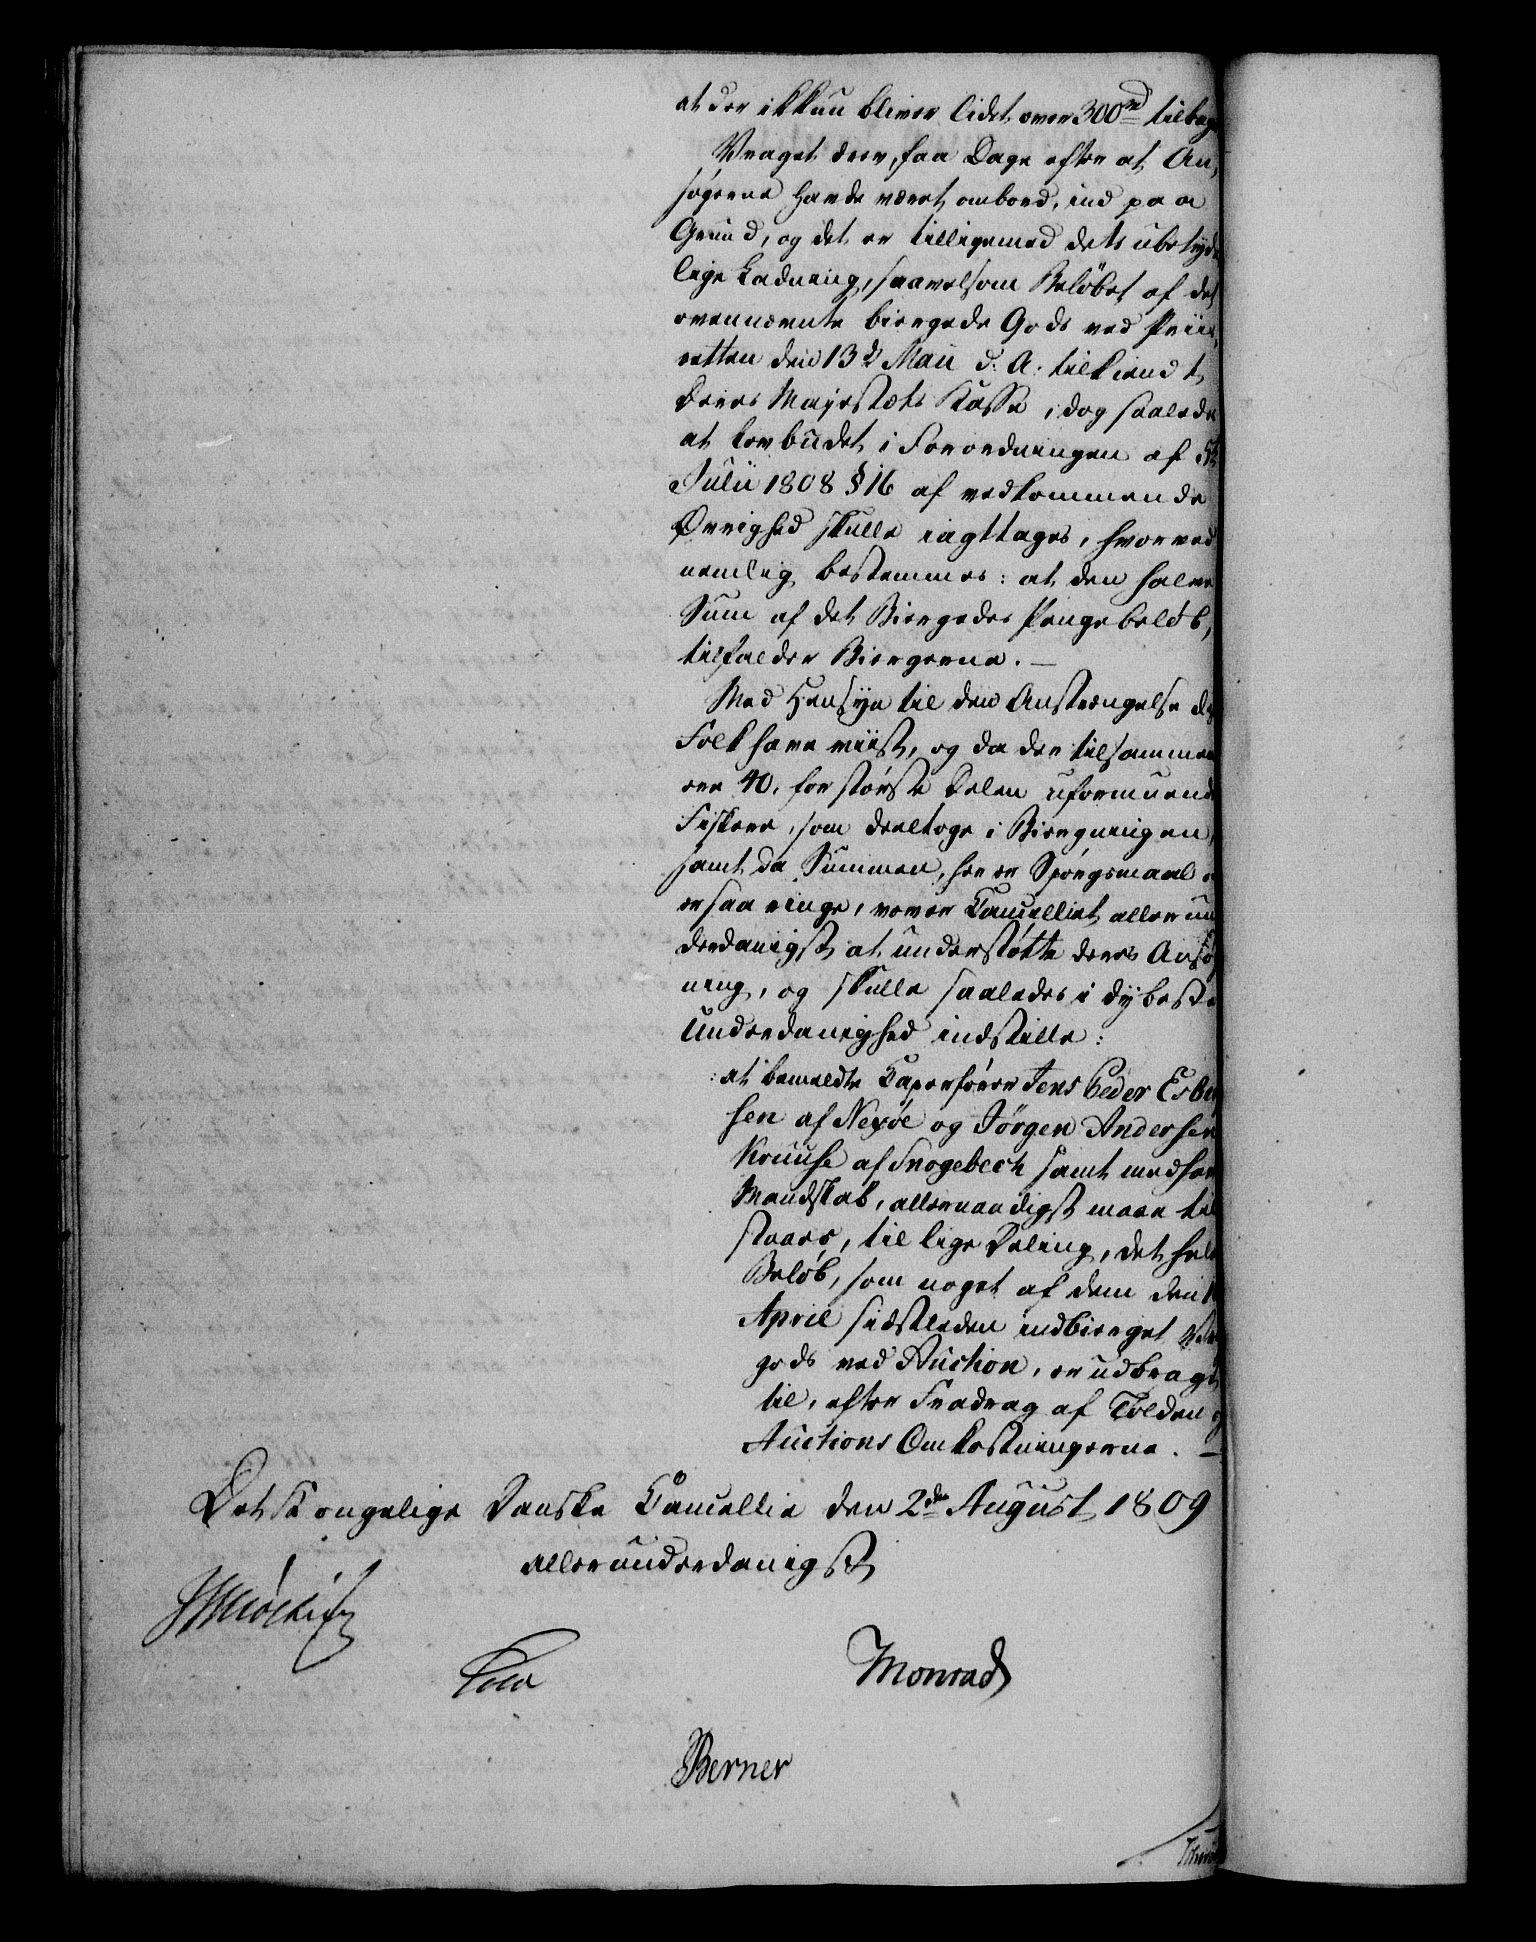 at der ikkun bliver lidet over 300 rd tilbage
Vraget drev, faa Dage efter at An-
søgerne havde været ombord, ind paa
Grund, og det er tilligemed dets ubetyde
lige Ladning, saavelsom Beløbet af det
ovennævnte biergede Gods ved Priis-
retten den 13de Maii d. A. tilkiendt
Deres Majestæts Kasse, dog saaledes
at Lovbudet i Forordningen af 5te
Julii 1808 § 16 af vedkommende
Øvrighed skulle iagttages, hvorved
nemlig bestemmes: at den halve
Sum af det Biergedes Pengebeløb,
tilfalder Biergerne. —
Med Hensyn til den Anstrængelse disse
Folk have viist, og da der tilsammen
ere 40, for største Delen uformuende
Fiskere, som deeltoge i Biergningen,
samt da Summen, her er Spørgsmaal o
er saa ringe, vover Cancelliet allerun
derdanigst at understøtte deres Ansøg
ning, og skulle saaledes i dybeste
Underdanighed indstille:
: at bemeldte Caperfører Jens Peder Esber
sen af Nexøe og Jörgen Andersen
Kruuse af Snogebech samt medhav
Mandskab, allernaadigst maae til
staaes, til lige Deling, det hele
Beløb, som noget af dem den 1
April sidstleden indbierget
gods ved Auction, er udbragt
til, efter Fradrag af Tolden og
Auctions Omkostningerne. —
Det Kongelige Danske Cancellie den 2den August 1809
allerunderdanigst
Monrad
Berner